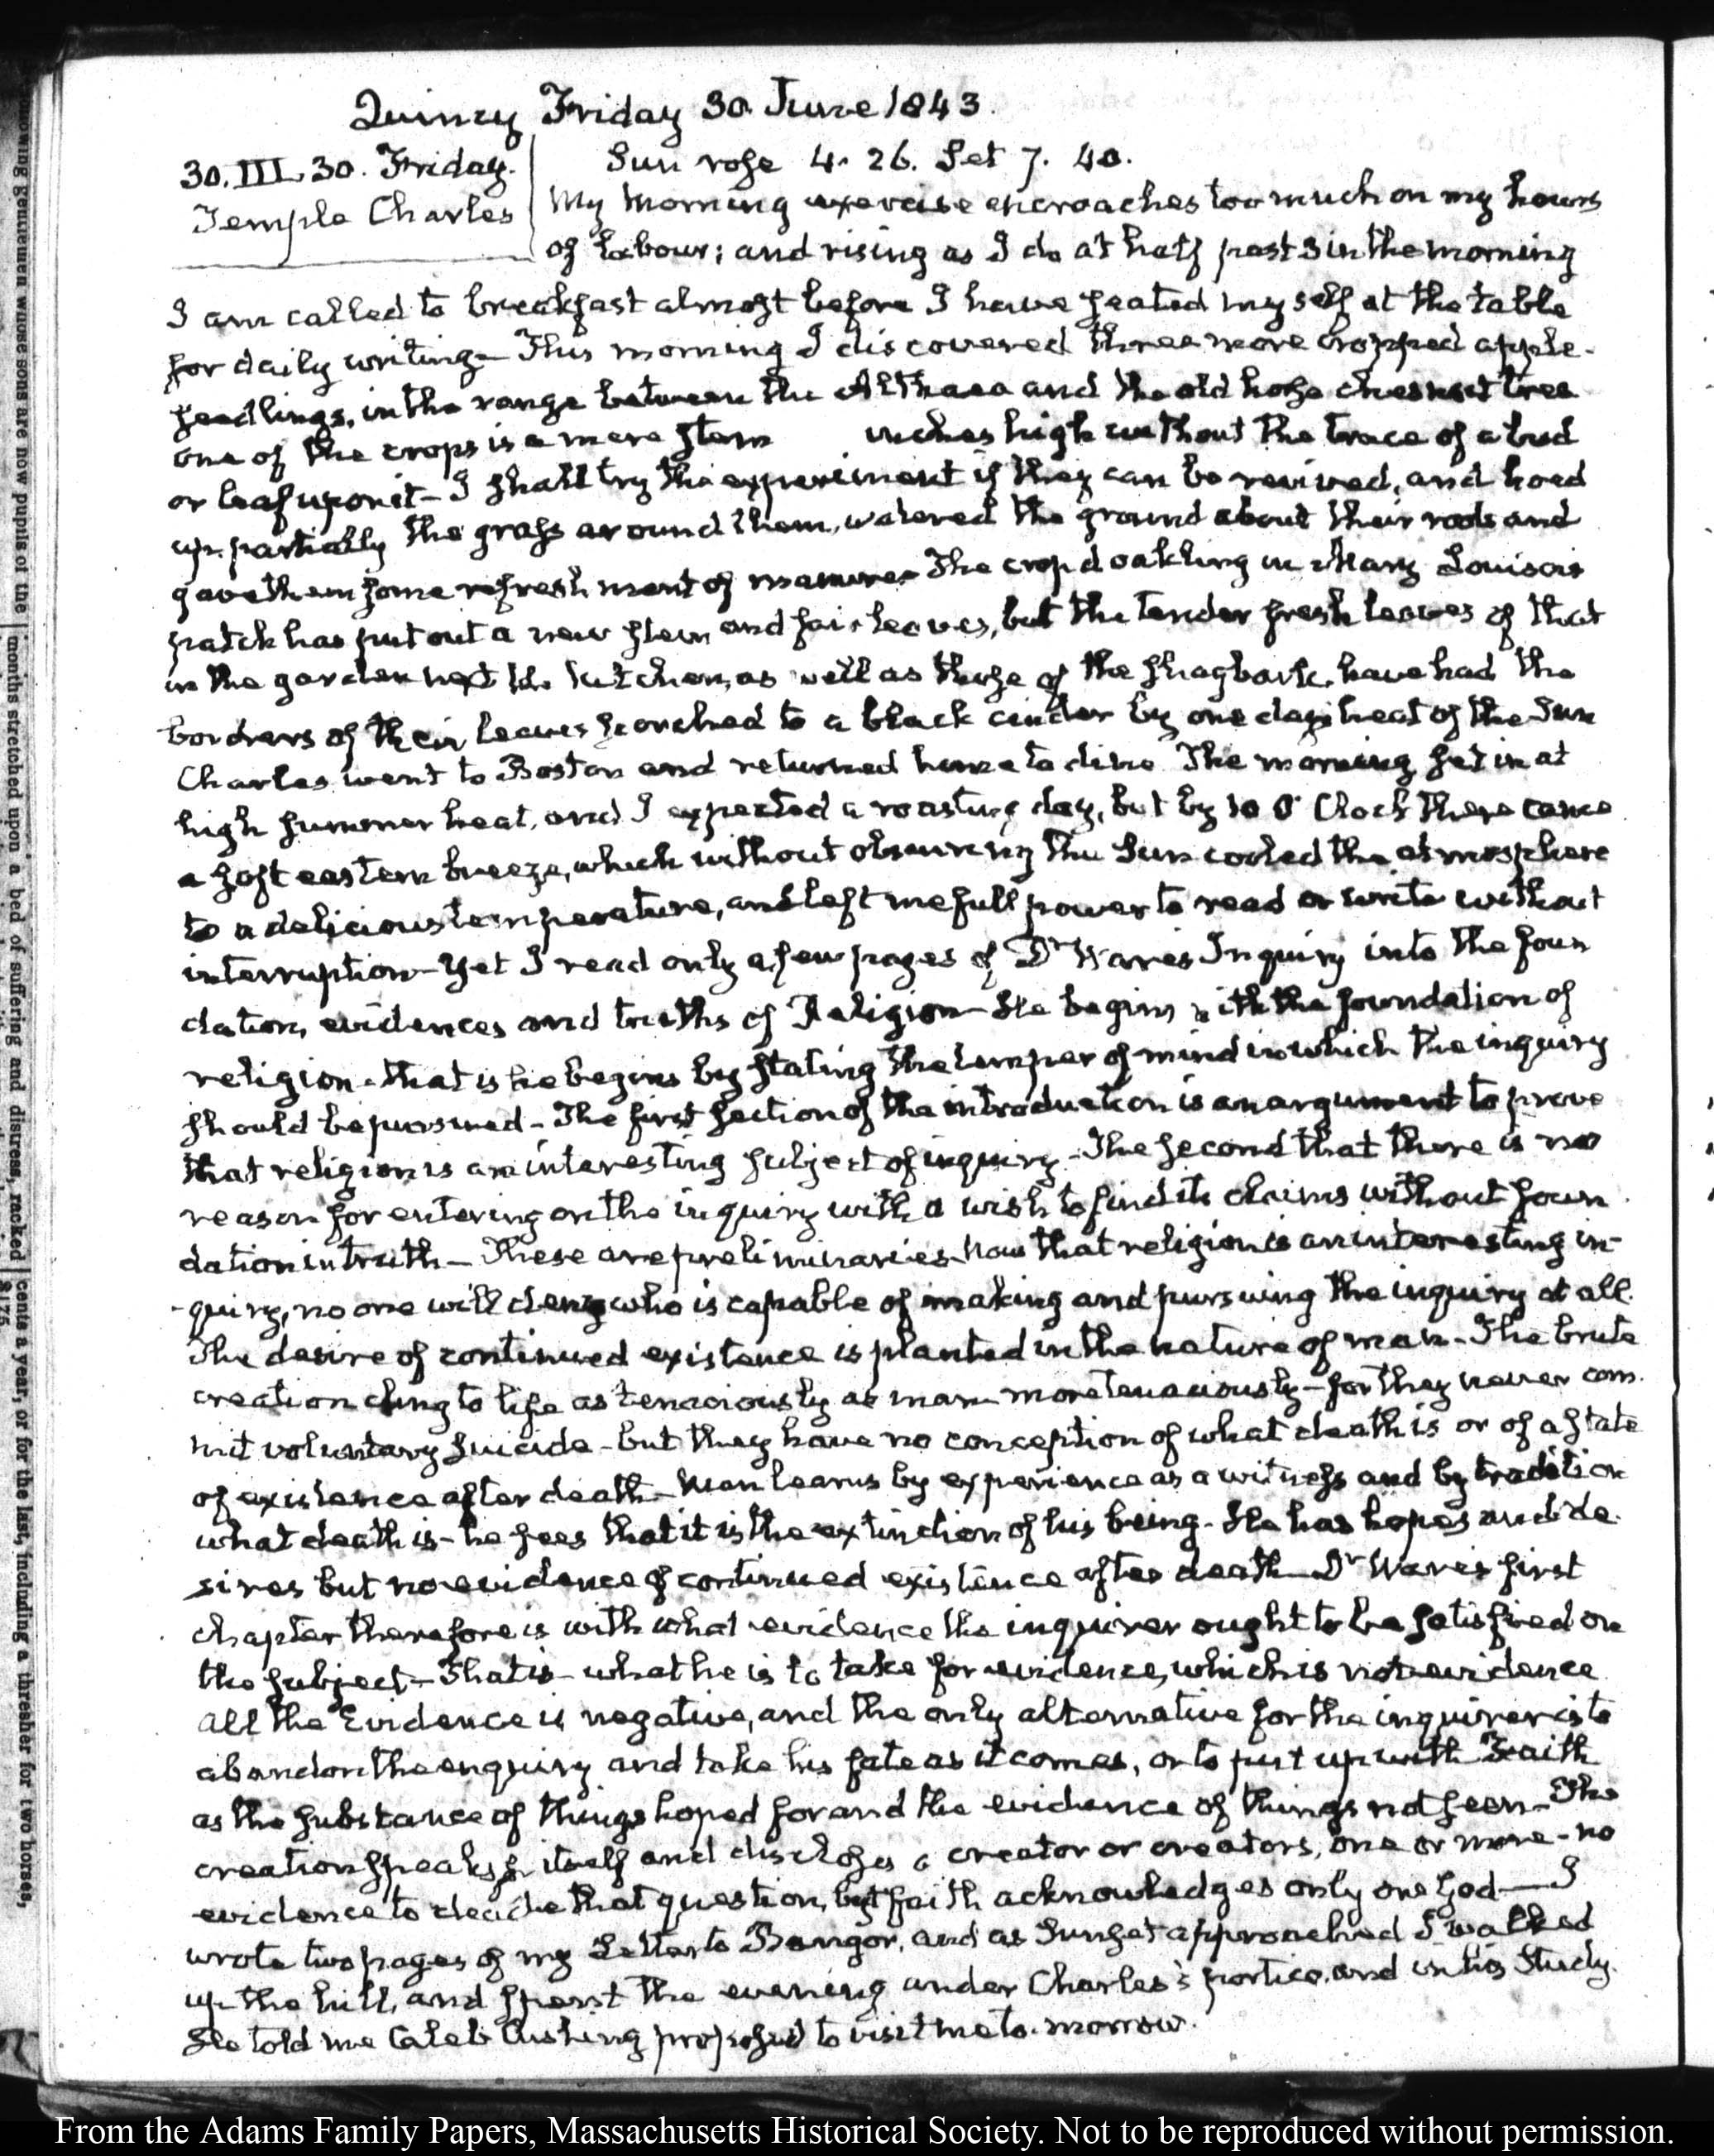 Quincy Friday 30. June 1843.
30. III. 30. Friday.
Temple Charles
Sun rose 4. 26. Set 7. 40.
My Morning exercise encroaches too much on my hours
of labour; and rising as I do at half past 3 in the morning
I am called to breakfast almost before I have seated myself at the table
for daily writing— This morning I discovered three more cropped apple-
seedlings, in the range between the Althaea and the old horse chesnut tree
one of the crops is a mere stem inches high without the trace of a bud
or leaf upon it— I shall try the experiment if they can be revived, and hoed
up partially the grass around them, watered the ground about their roots and
gave them some refreshment of manure— The crop'd oakling in Mary Louisa's
patch has put out a new stem and fair leaves, but the tender fresh leaves of that
in the garden next the kitchen, as well as those of the shagbark, have had the
borders of their leaves scorched to a black cinder by one day's heat of the Sun
Charles went to Boston and returned home to dine The morning set in at
high summer heat, and I expected a roasting day, but by 10 O'Clock there came
a soft eastern breeze, which without obscuring the Sun cooled the atmosphere
to a delicious temperature, and left me full power to read or write without
interruption— Yet I read only a few pages of Dr Ware's Inquiry into the foun
dation, evidences and truths of Religion— He begins with the foundation of
religion— that is he begins by stating the temper of mind in which the inquiry
should be pursued— The first section of the introduction is an argument to prove
that religion is an interesting subject of inquiry— The second that there is no
reason for entering on the inquiry with a wish to find its claims without foun
dation in truth— These are preliminaries— Now that religion is an interesting in-
-quiry, no one will deny who is capable of making and pursuing the inquiry at all.
The desire of continued existence is planted in the nature of man— The brute
creation cling to life as tenaciously as man— more tenaciously— for they never com-
mit voluntary suicide— but they have no conception of what death is or of a state
of existence after death— Man learns by experience as a witness and by tradition
what death is— he sees that it is the extinction of his being— He has hopes and de-
sires but no evidence of continued existence after death— Dr Ware's first
chapter therefore is with what evidence the inquirer ought to be satisfied on
the subject— That is— what he is to take for evidence, which is not evidence
All the Evidence is negative, and the only alternative for the inquirer is to
abandon the enquiry and take his fate as it comes, or to put up with Faith
as the substance of things hoped for and the evidence of things not seen— The
creation speaks for itself and discloses a creator or creators, one or more— no
evidence to decide that question, but faith acknowledges only one God— I
wrote two pages of my Letter to Bangor, and as Sunset approached I walked
up the hill, and spent the evening under Charles's portico, and in his Study.
He told me Caleb Cushing proposed to visit me to-morrow.
gentlemen whose sons are now pupils of the
months stretched upon a bed of suffering and distress, racked
cents a year, or for the last, including a thresher for two horses,
$175
From the Adams Family Papers, Massachusetts Historical Society. Not to be reproduced without permission.